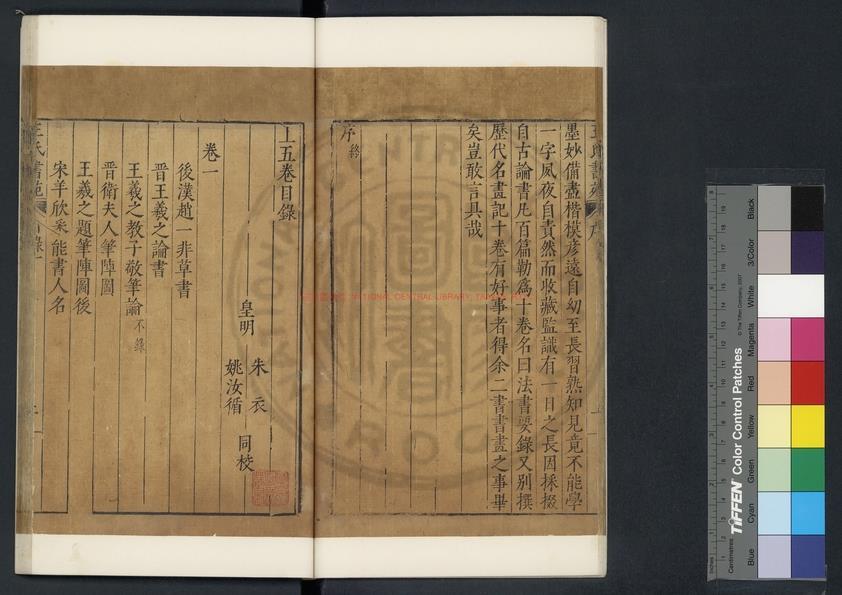 墨妙備盡楷模彥遠自幼至長習熟知見竟不能學
一字夙夜自責然而收藏監識有一日之長因採掇
自古論書凡百篇勒為十卷名曰法書要錄又別撰
歷代名畫記十卷有好事者得余二書書畫之事畢
矣豈敢言具哉
序終
上五卷目錄
皇明
朱衣
姚汝循
同校
卷一
後漢趙一非草書
晉王羲之論書
王羲之教子敬筆論不錄
晉衛夫人筆陣圖
王羲之題筆陣圖後
宋羊欣采能書人名
王氏書苑
NATIONAL CENTRAL LIBRARY,
TIFFEN Color Control Patches
© The Tiffen Company, 2007
Centimetres
Inches
Blue
Cyan
Green
Yellow
Red
Magenta
White
3/Color
Black